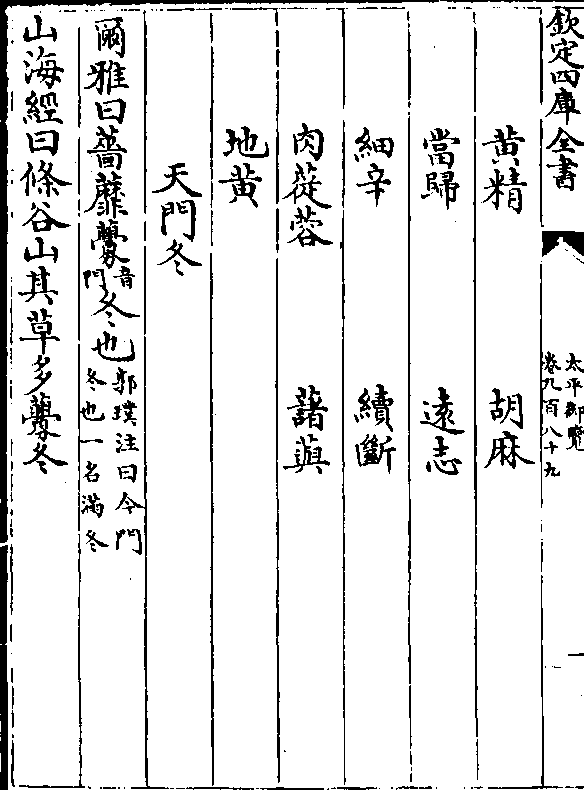 欽定四庫全書
太平御覽
卷九百八十九
一
黄精 胡麻
當歸 遠志
細辛 續斷
肉蓯蓉 藷藇
地黄
天門冬
爾雅曰蔷蘼虋音門冬也郭璞注曰今門冬也一名滿冬
山海經曰條谷山其草多虋冬